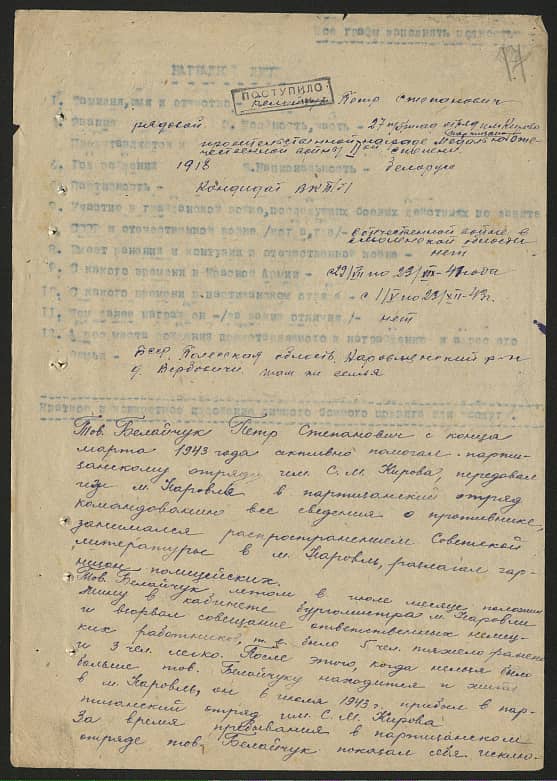 Все графы заполнять полностью
17
НАГРАДНОЙ ЛИСТ
ПОСТУПИЛО
1. Фамилия, имя и отчество - Белайчук Петр Степанович
2. Звание рядовой 3. Должность, часть - 27 отряд им. Кирова
партизан
Представляется к правительственной награде Медаль "Оте-
чественной войны" II ой степени.
4. Год рождения 1918 5. Национальность - беларус
6. Партийность - Кандидат ВКП/б/
7. Участие в гражданской войне, последующих боевых действиях по защите
СССР и отечественной войне /где и когда/ - в отечественной войне в
Смоленской области
8. Имеет ранения и контузии в отечественной войне - нет
9. С какого времени в Красной Армии - с 29/ по 23/ -41 года
10. С какого времени в партизанском отряде - с 1/V по 23/XII-43 г.
11. Чем ранее награжден - /за какие отличия/ - нет
12. Адрес места рождения представляемого к награждению и адрес его
семьи - БССР, Полесская область, Наровлянский р-н
д. Вербовичи там же семья
Краткое и конкретное изложение личного боевого подвига или заслуг.
Тов. Белайчук Петр Степанович с конца
марта 1943 года активно помогал парти-
занскому отряду им. С. М. Кирова, передавал
из м. Наровля в партизанский отряд
командованию все сведения о противнике,
занимался распространением Советской
литературы в м. Наровль, разлагал гар-
низон полицейских.
Тов. Белайчук летом в июле месяце положил
мину в кабинете бургомистра м. Наровли
и взорвал совещание ответственных немец-
ких работников, т.е. было 5 чел. тяжело ранено
и 3 чел. легко. После этого, когда нельзя было
больше тов. Белайчуку находится и жить
в м. Наровль, он в июля 1943 г. прибыл в пар-
тизанский отряд им. С. М. Кирова.
За время пребывания в партизанском
отряде тов. Белайчук показал себя исклю-